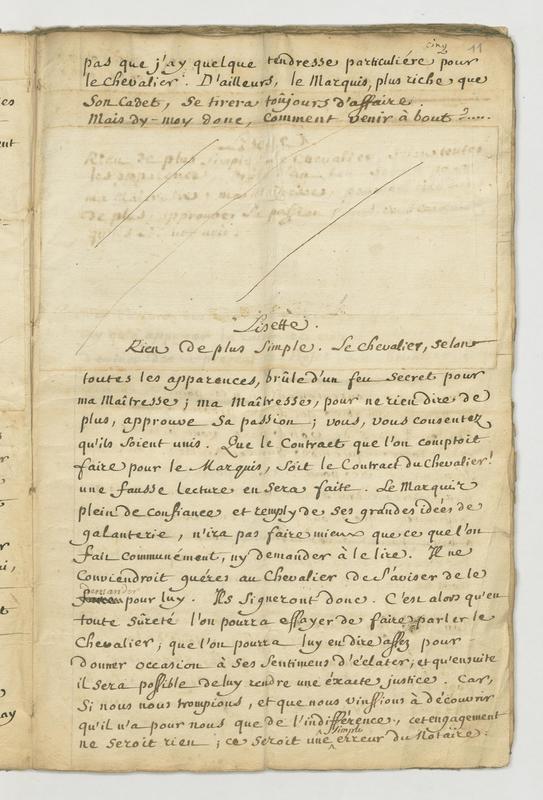 cinq 11
pas que j'ay quelque tendresse particuliére pour
le Chevalier. D'ailleurs, le Marquis, plus riche, que
Son Cadet, Se tirera toûjours d'affaire.
Mais dy-moy donc, Comment venir à bout ?.....
Lisette.
Rien de plus Simple. Le Chevalier, Selon
toutes les apparences, brûle d'un feu Secret pour
ma Maîtresse ; ma Maîtresse, pour ne rien dire de
plus, approuve Sa passion ; vous, vous consentez
qu'ils Soient unis. Que le Contract que l'on comptoit
faire pour le Marquis, Soit le Contract du Chevalier !
une fausse lecture en Sera faite. Le Marquis
plein de Confiance et remply de Ses grandes idées de
galanterie, n'ira pas faire mieux que ce que l'on
fait Communément, ny demander à le lire. Il ne
Conviendroit guéres au Chevalier de S'aviser de le
demander
pour luy. Ils Signeront donc. C'est alors qu'en
toute Sûreté l'on pourra essayer de faire parler le
Chevalier ; que l'on pourra luy en dire assez pour
donner occasion à Ses Sentimens d'éclater, et qu'ensuite
il Sera possible de luy rendre une éxacte justice. Car,
Si nous nous trompions, et que nous vinssions à découvrir
qu'il n'a pour nous que de l'indifférence, cet engagement
simple
ne Seroit rien ; ce Seroit une erreur du Notaire.